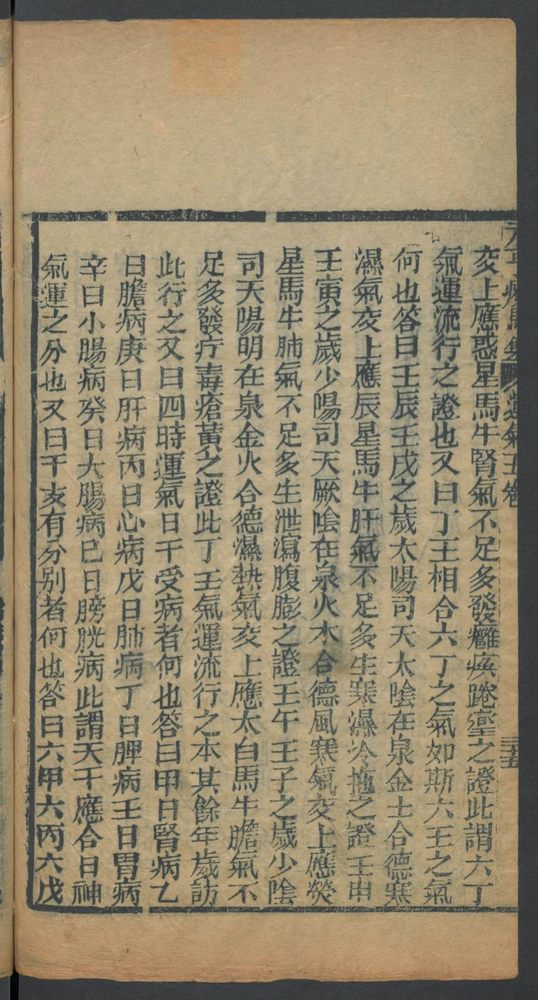 交上應惑星馬牛腎氣不足多發癱瘓踠壅之證此謂六丁
氣運流行之證也又曰丁壬相合六丁之氣如斯六壬之氣
何也答曰壬辰壬戌之歲太陽司天太陰在泉金土合德寒
濕氣交上應辰星馬牛肝氣不足多生寒濕冷拖之證壬申
壬寅之歲少陽司天厥陰在泉火木合德風寒氣交上應熒
星馬牛肺氣不足多生泄瀉腹膨之證壬午壬子之歲少陰
司天陽明在泉金火合德濕熱氣交上應太白馬牛膽氣不
足多發疔毒瘡黃之證此丁壬氣運流行之本其餘年歲訪
此行之又曰四時運氣日干受病者何也答曰甲日腎病乙
日膽病庚日肝病丙日心病戊日肺病丁日脾病壬日胃病
辛日小腸病癸日大腸病巳日膀胱病此謂天干應合日神
氣運之分也又曰干支有分別者何也答曰六甲六丙六戊
運氣五卷
三十五